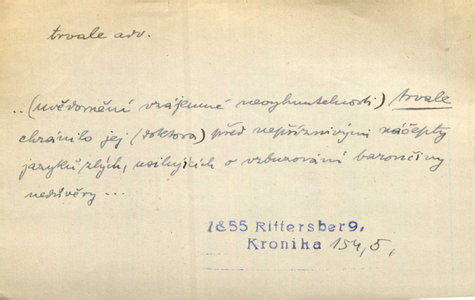 trvale adv.
..(uvědomění vzájemné neoyhnutelnosti) trvale
chránilo jej (doktora) před nepříznivými náčepty
jazyků zlých, usilujících o vzbuzování barončiny
nedůvěry ...
1855 Rittersberg,
Kronika 154,5,